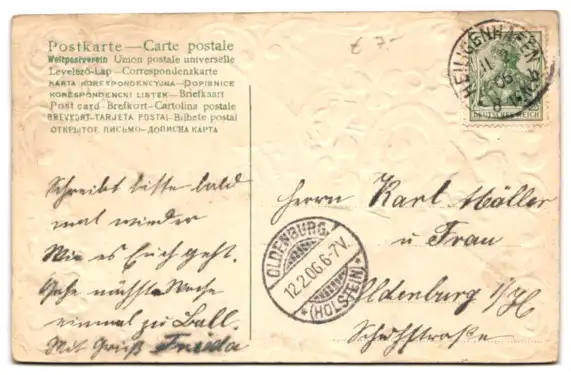 Postkarte — Carte postale
Weltpostverein Union postale universelle
Levelező-Lap — Correspondenzkarte
KARTA KORRESPONDENCYJNA — DOPISNICE
KORESPONDENČNÍ LISTEK — Briefkaart
Post card — Brefkort — Cartolina postale
BREVKORT — TARJETA POSTAL — Bilhete postal
ОТКРЫТОЕ ПИСЬМО — ДОПИСНА КАРТА
€ 7.-
HEILIGENHAFEN
11
8
DEUTSCHES REICH
Schreibt bitte bald
mal wieder
Wie es Euch geht.
Gehe nächste Woche
einmal zu Ball.
Mit Gruß Frieda
OLDENBURG.
12.2.06.6-7V.
* (HOLSTEIN) *
Herrn Karl Möller
u Frau
Oldenburg i/H
Schuhstraße